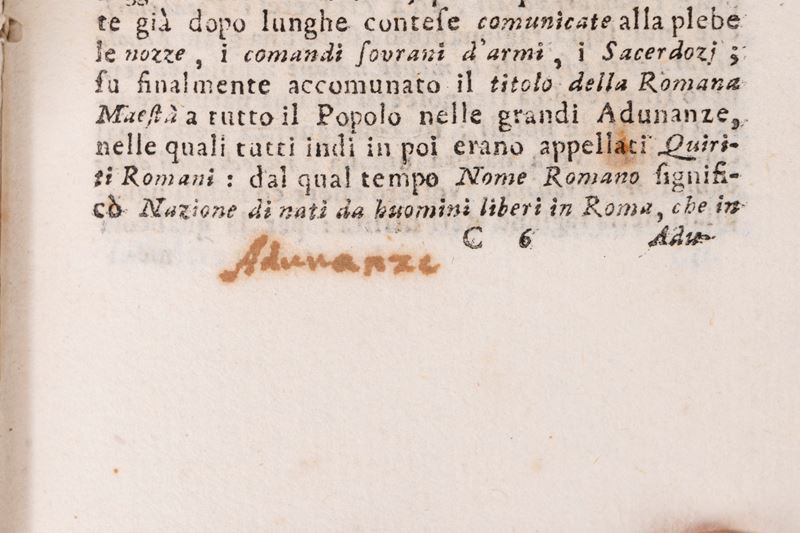 te già dopo lunghe conteſe comunicate alla plebe
le nozze, i comandi ſovrani d'armi, i Sacerdozj;
fu finalmente accomunato il titolo della Romana
Maeſtà a tutto il Popolo nelle grandi Adunanze,
nelle quali tutti indi in poi erano appellati Quiri-
ti Romani: dal qual tempo Nome Romano ſignifi-
cò Nazione di nati da huomini liberi in Roma, che in
C 6 Adu-
Adunanze